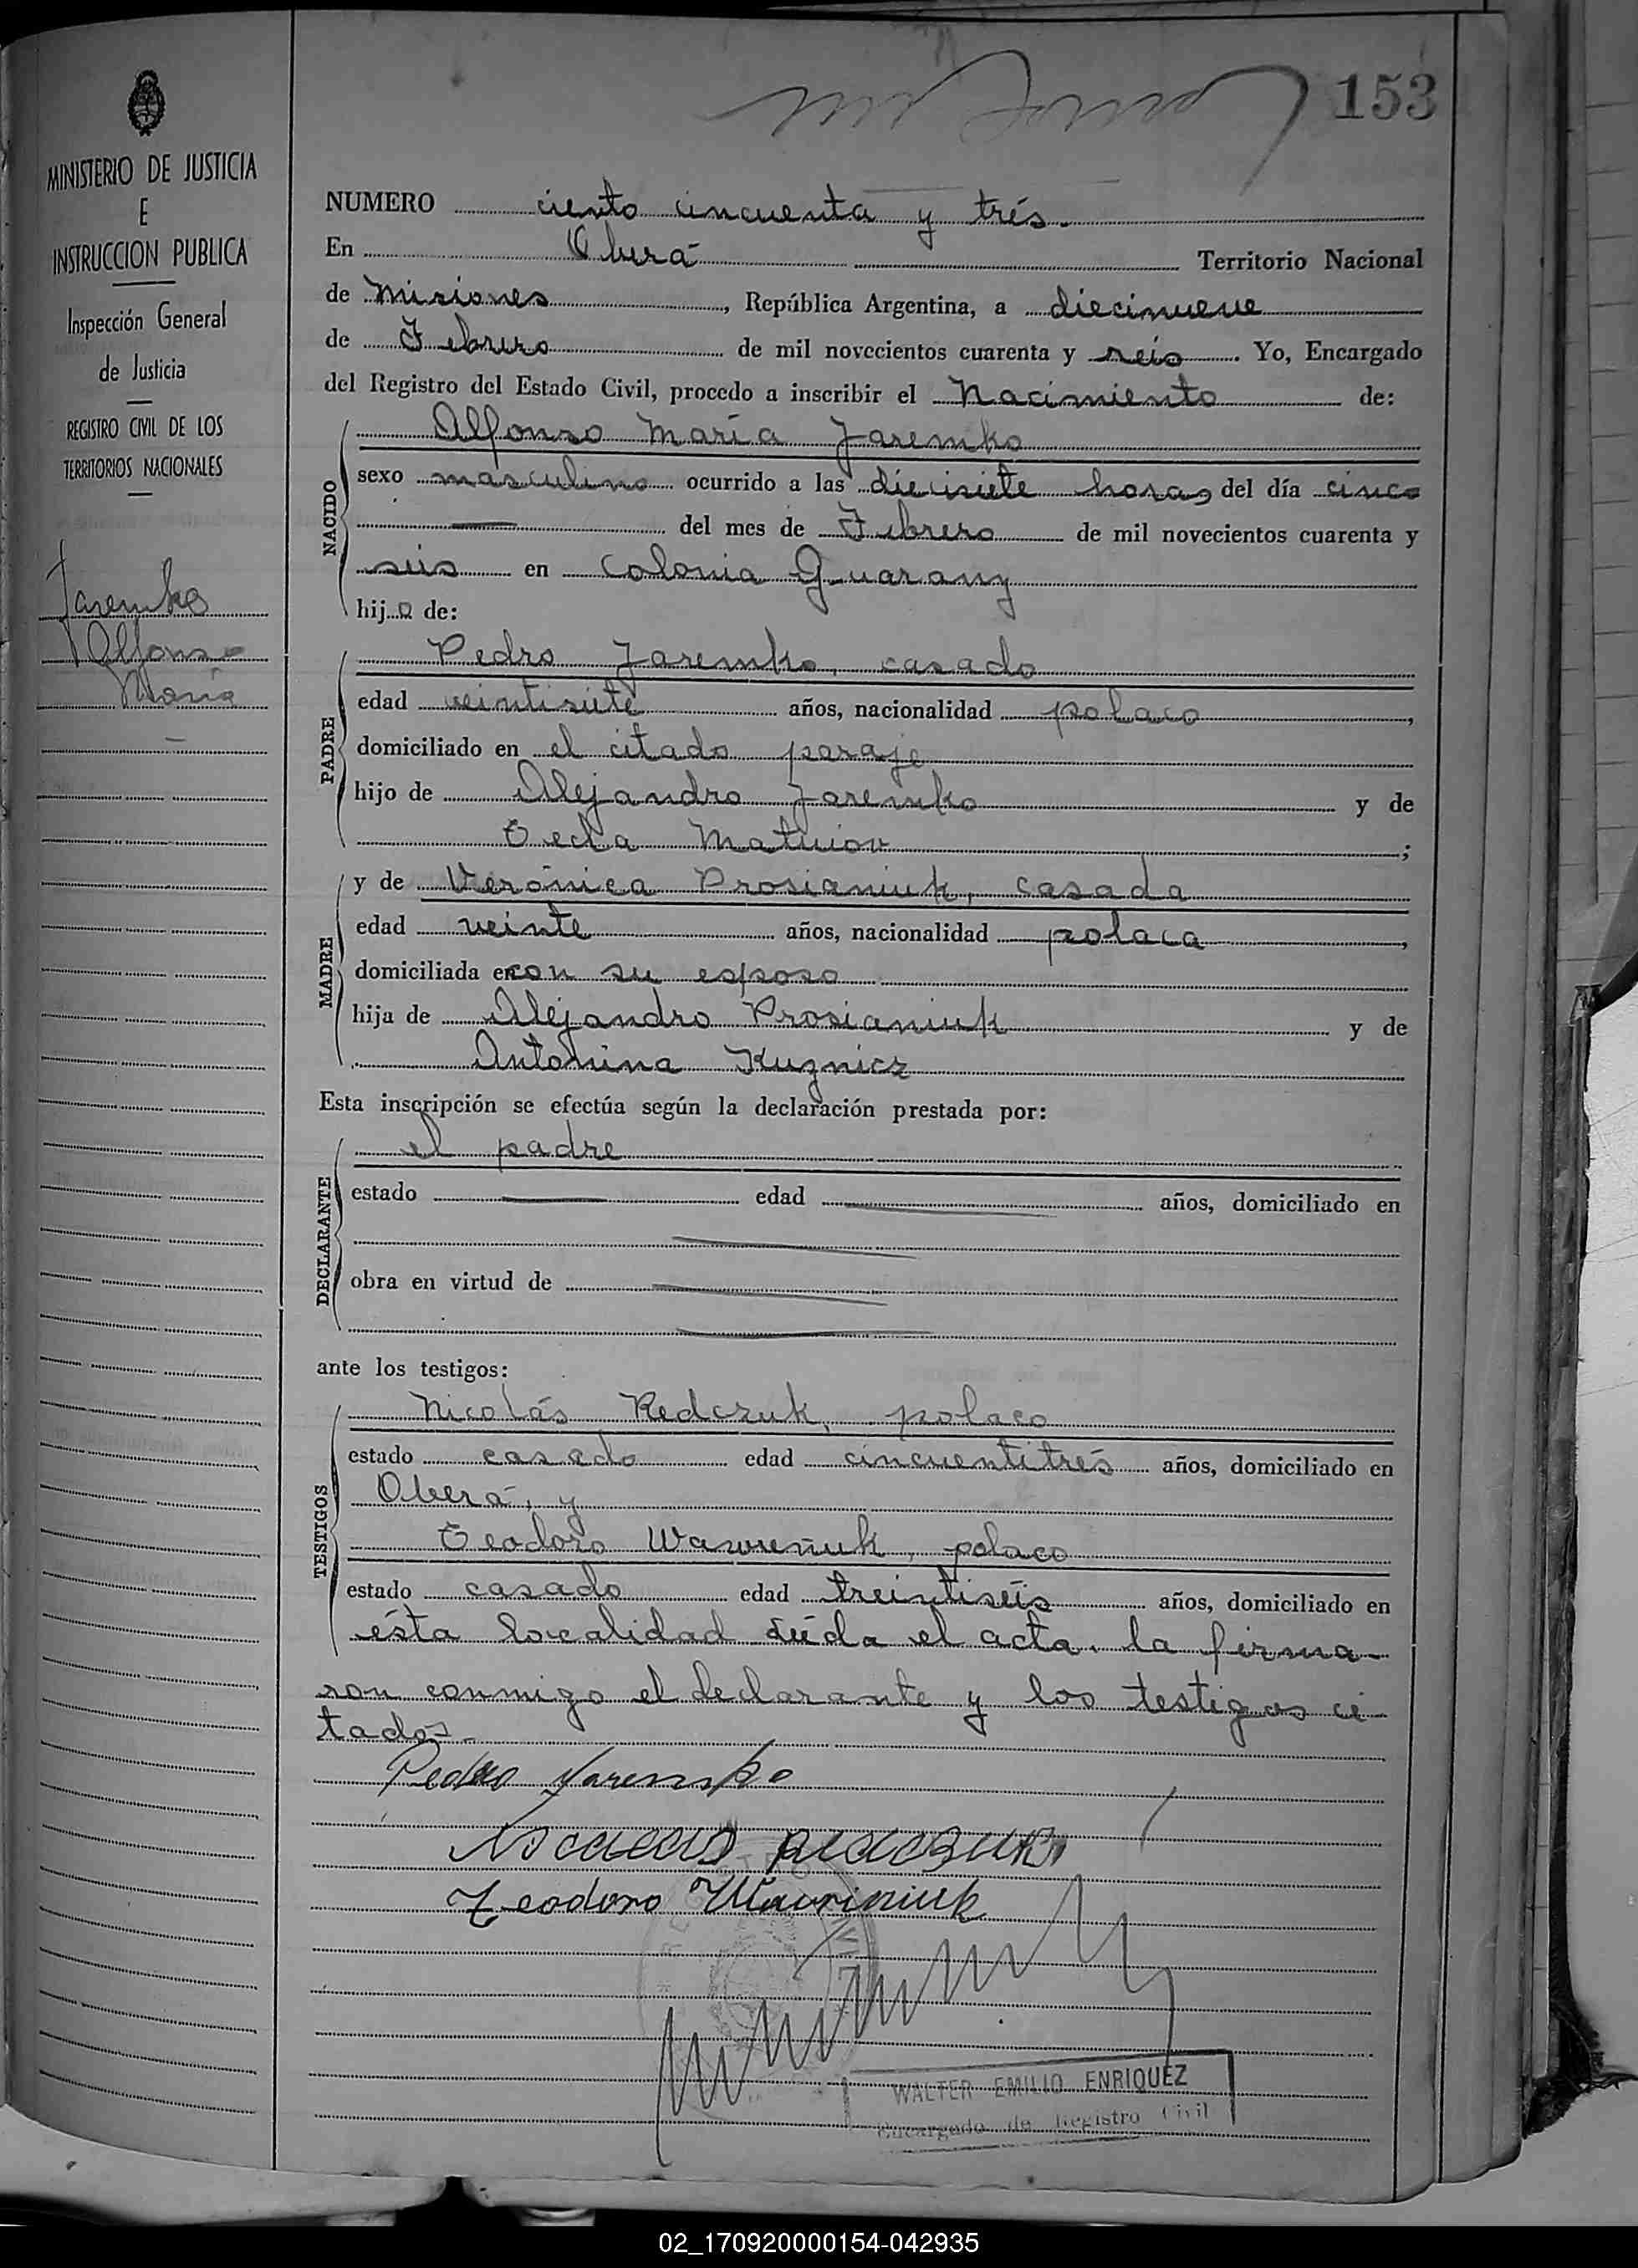 153
MINISTERIO DE JUSTICIA
E
INSTRUCCION PUBLICA
Inspección General
de Justicia
REGISTRO CIVIL DE LOS
TERRITORIOS NACIONALES
Jaremko
Alfonso
María
NUMERO ciento cincuenta y trés
En Oberá Territorio Nacional
de Misiones, República Argentina, a diecinueve
de Febrero de mil novecientos cuarenta y seis. Yo, Encargado
del Registro del Estado Civil, procedo a inscribir el Nacimiento de:
NACIDO
Alfonso María Jaremko
sexo masculino ocurrido a las diecisiete horas del día cinco
del mes de Febrero de mil novecientos cuarenta y
seis en Colonia Guarany
hijo de:
PADRE
Pedro Jaremko, casado
edad veintisiete años, nacionalidad polaco,
domiciliado en el citado paraje
hijo de Alejandro Jaremko y de
Tecla ;
MADRE
y de Verónica Prosianiuk, casada
edad veinte años, nacionalidad polaca,
domiciliada en con su esposo
hija de Alejandro Prosianiuk y de
Antonina Kuznicz
Esta inscripción se efectúa según la declaración prestada por:
DECLARANTE
el padre
estado edad años, domiciliado en
obra en virtud de
ante los testigos:
TESTIGOS
Nicolás Redczuk, polaco
estado casado edad cincuentitrés años, domiciliado en
Oberá, y
Teodoro polaco
estado casado edad treintiséis años, domiciliado en
ésta localidad Leída el acta, la firma-
ron conmigo el declarante y los testigos ci-
tados.-
Pedro Jaremko
Teodoro Wavriniuk
WALTER EMILIO ENRIQUEZ
Encargado de Registro Civil
02_170920000154-042935